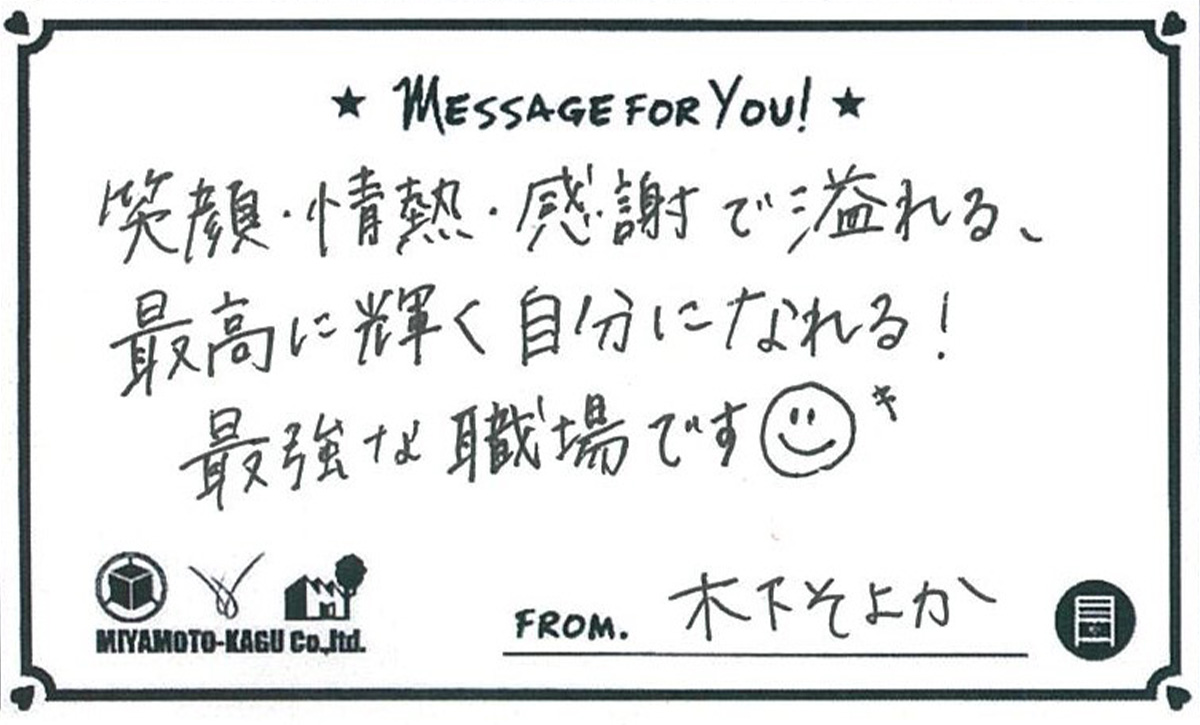 ★ MESSAGE FOR YOU! ★
笑顔・情熱・感謝で溢れる、
最高に輝く自分になれる!
最強な職場です
MIYAMOTO-KAGU Co.,ltd.
FROM. 木下そよか